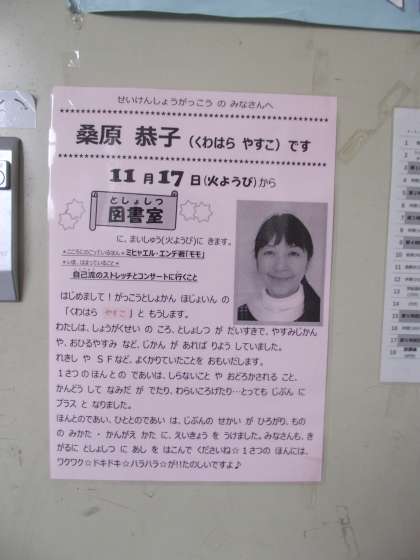 せいけんしょうがっこう の みなさんへ
桑原 恭子 (くわはら やすこ) です
11月17日(火ようび)から
としょしつ
図書室
に、まいしゅう(火ようび)に きます。
＊こころにのこっているほん＊ミヒャエル・エンデ著「モモ」
＊いま、はまっていること＊
自己流のストレッチとコンサートに行くこと
はじめまして!がっこうとしょかん ほじょいん の
「くわはら やすこ」 と もうします。
わたしは、しょうがくせい の ころ、としょしつ が だいすきで、やすみじかん
や、おひるやすみ など、じかん が あれば りよう していました。
れきし や SFなど、よくかりていたことを おもいだします。
1さつ の ほんと の であいは、しらないこと や おどろかされる こと、
かんどう して なみだ が でたり、わらいころげたり…とっても じぶん に
プラス と なりました。
ほんとのであい、ひととのであい は、じぶんの せかい が ひろがり、もの
の みかた ・ かんがえ かた に、えいきょう を うけました。みなさんも、き
がるに としょしつ に あし を はこんで くださいね☆1さつの ほんには、
ワクワク☆ドキドキ☆ハラハラ☆が!!たのしいですよ♪